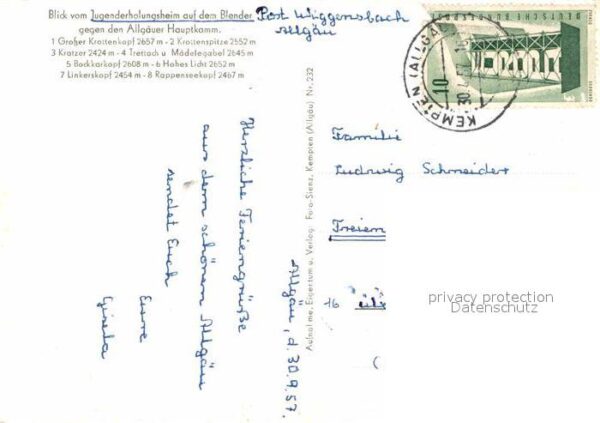 Blick vom Jugenderholungsheim auf dem Blender, Post Wiggensbach
Allgäu
gegen den Allgäuer Hauptkamm.
1 Großer Krottenkopf 2657 m - 2 Krottenspitze 2552 m
3 Kratzer 2424 m - 4 Trettach u. Mädelegabel 2645 m
5 Bockkarkopf 2608 m - 6 Hohes Licht 2652 m
7 Linkerskopf 2454 m - 8 Rappenseekopf 2467 m
Allgäu, d. 30.9.57.
Herzliche Feriengrüße
aus dem schönen Allgäu
sendet Euch
Eure
Gisela
Aufnahme, Eigentum u. Verlag: Foto-Sienz, Kempten (Allgäu) Nr. 232
DEUTSCHE BUNDESPOST
KEMPTEN (ALLGÄU)
10
Familie
Ludwig Schneider
16
privacy protection
Datenschutz